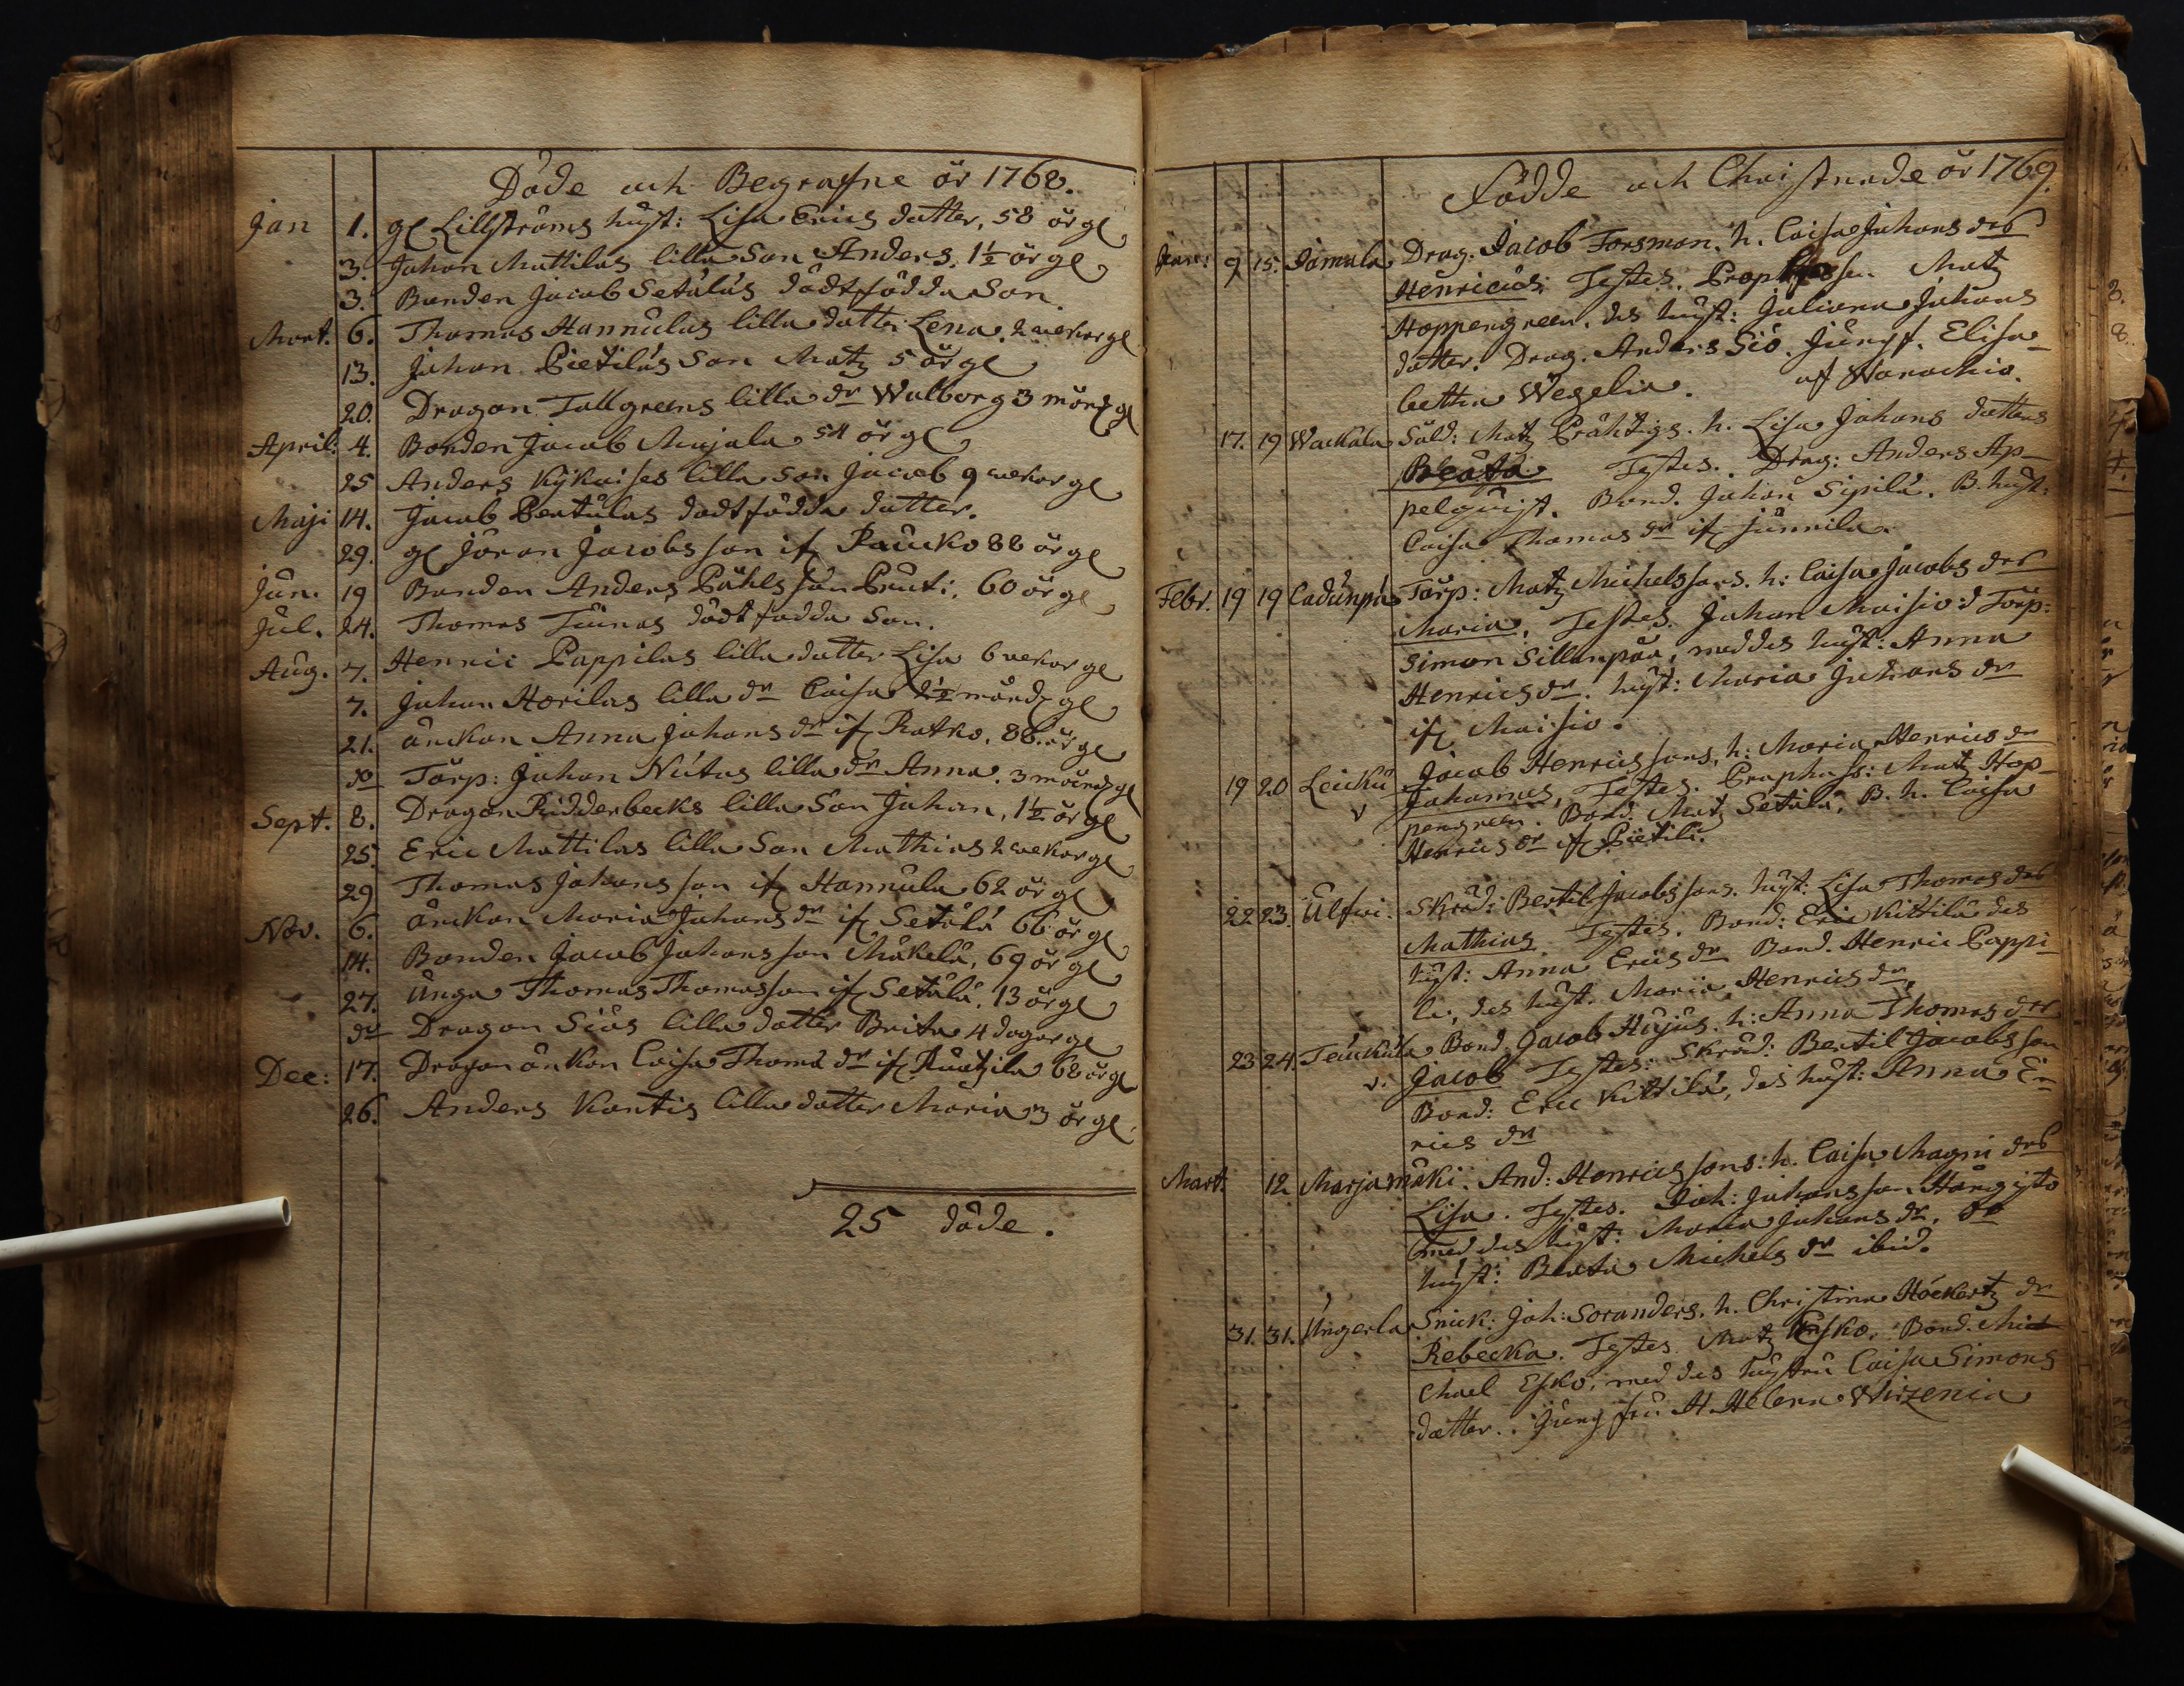 Döde och Begrafne år 1768.
Jan 1. gl Lillströms hust: Lisa Erics dotter, 58 år gl
3. Johan Mattilas lilla Son Anders, 1½ år gl
3. Bonden Jacob Setäläs dödtfödda Son.
Mart. 6. Thomas Hannulas lilla dotter Lena, 2 wekor gl
13. Johan Pietiläs Son Matz 5 år gl
20. Dragon Tallgreens lilla dr Walborg 3 mån gl
April. 4. Bonden Jacob Majala 54 år gl
25 Anders Kykaises lilla son Jacob 9 wekor gl
Maji 14. Jacob Pentulas dödtfödda dotter.
29. gl Jöran Jacobsson if Paucko 88 år gl
Jun. 19 Bonden Anders Påhlsson 60 år gl
Jul. 24. Thomas dödtfödda Son.
Aug. 7. Henric Pappilas lilla dotter Lisa 6 wekor gl
7. Johan Horilas lilla dr Caisa 2½ månd gl
21. änckan Anna Johans dr if Ratko. 88 år gl
do Torp: Johan lilla dr Anna. 3 månd gl
Sept. 8. Dragon Ridderbecks lilla Son Johan, 1½ år gl
25. Eric Mattilas lilla Son Mathias 2 wekor gl
29 Thomas Johansson if Hannula 62 år gl
Nov. 6. änckan Maria Johans dr if Setälä 66 år gl
14. Bonden Jacob Johansson Mäkelä, 69 år gl
27. Unga Thomas Thomasson if Setälä. 13 år gl
do Dragon Siös lilla dotter Brita 4 dagar gl
Dec: 17. Dragon änkan Caisa Thoma dr if 68 år gl
26. Anders Kontis lilla dotter Maria 3 år gl
25 döde.
Födde och Christnade år 1769.
Janu: 9 15. Jämälä Drag. Jacob Forsman. h. Caisa Johans drs
Henricus; Testes. Matz
Hoppengreen. des hust: Juliana Johans
dotter. Drag. Anders Siö. Jungf. Elisa-
betha Wegelia. af Warachio.
17. 19 Wackala Sold: Matz Prähtigs. h. Lisa Johans dotters
Beata Testes. Drag: Anders Ap-
pelquist. Bond. Johan Sipilä. B. hust:
Caisa Thomas dr if Junnila.
Febr. 19 19 Ladunpä Torp: Matz Michelssons. h: Caisa Jacobs drs
Maria, Testes. Johan Maisio: Torp:
Simon Sillanpää, med des hust: Anna
Henrics dr. hust: Maria Johans dr
if Maisio.
19 20 Leickü Jacob Henrics sons, h: Maria Henrics dr
v Johannes, Testes. Prophoss: Matz Hop-
pengreen. Bond. Matz Setälä, B. h. Caisa
Henrics dr if Pietilä.
22 23. Ulfwi. Skräd: Bertil Jacobs sons. hust: Lisa Thomas drs
Mathias Testes. Bond: Eric Kittilä des
hust: Anna Erics dr Bond. Henric Pappi-
la, des hust. Maria Henrics dr,
23 24. Teuckula Bond Jacob Hujus. h: Anna Thomas drs
v. Jacob Testes: Skräd: Bertil Jacobsson
Bond: Eric Kittilä, des hust: Anna E-
rics dr
Mart. 12 Marjamäki. And: Henrics sons: h. Caisa Magni drs
Lisa. Testes. Joh: Johansson
med des hust: Maria Johans dr. do
hust: Beata Michels dr ibid.
31. 31. Ungerla Snick: Joh: Soranders. h. Christina Höckertz dr
Rebecka. Testes Matz Esko. Bond. Mi-
chael Esko, med des hustru Caisa Simons
dotter. Jungfru H. Helena Wirzenia